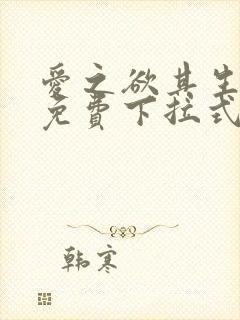 爱之欲其生
免費下拉式
韩寒